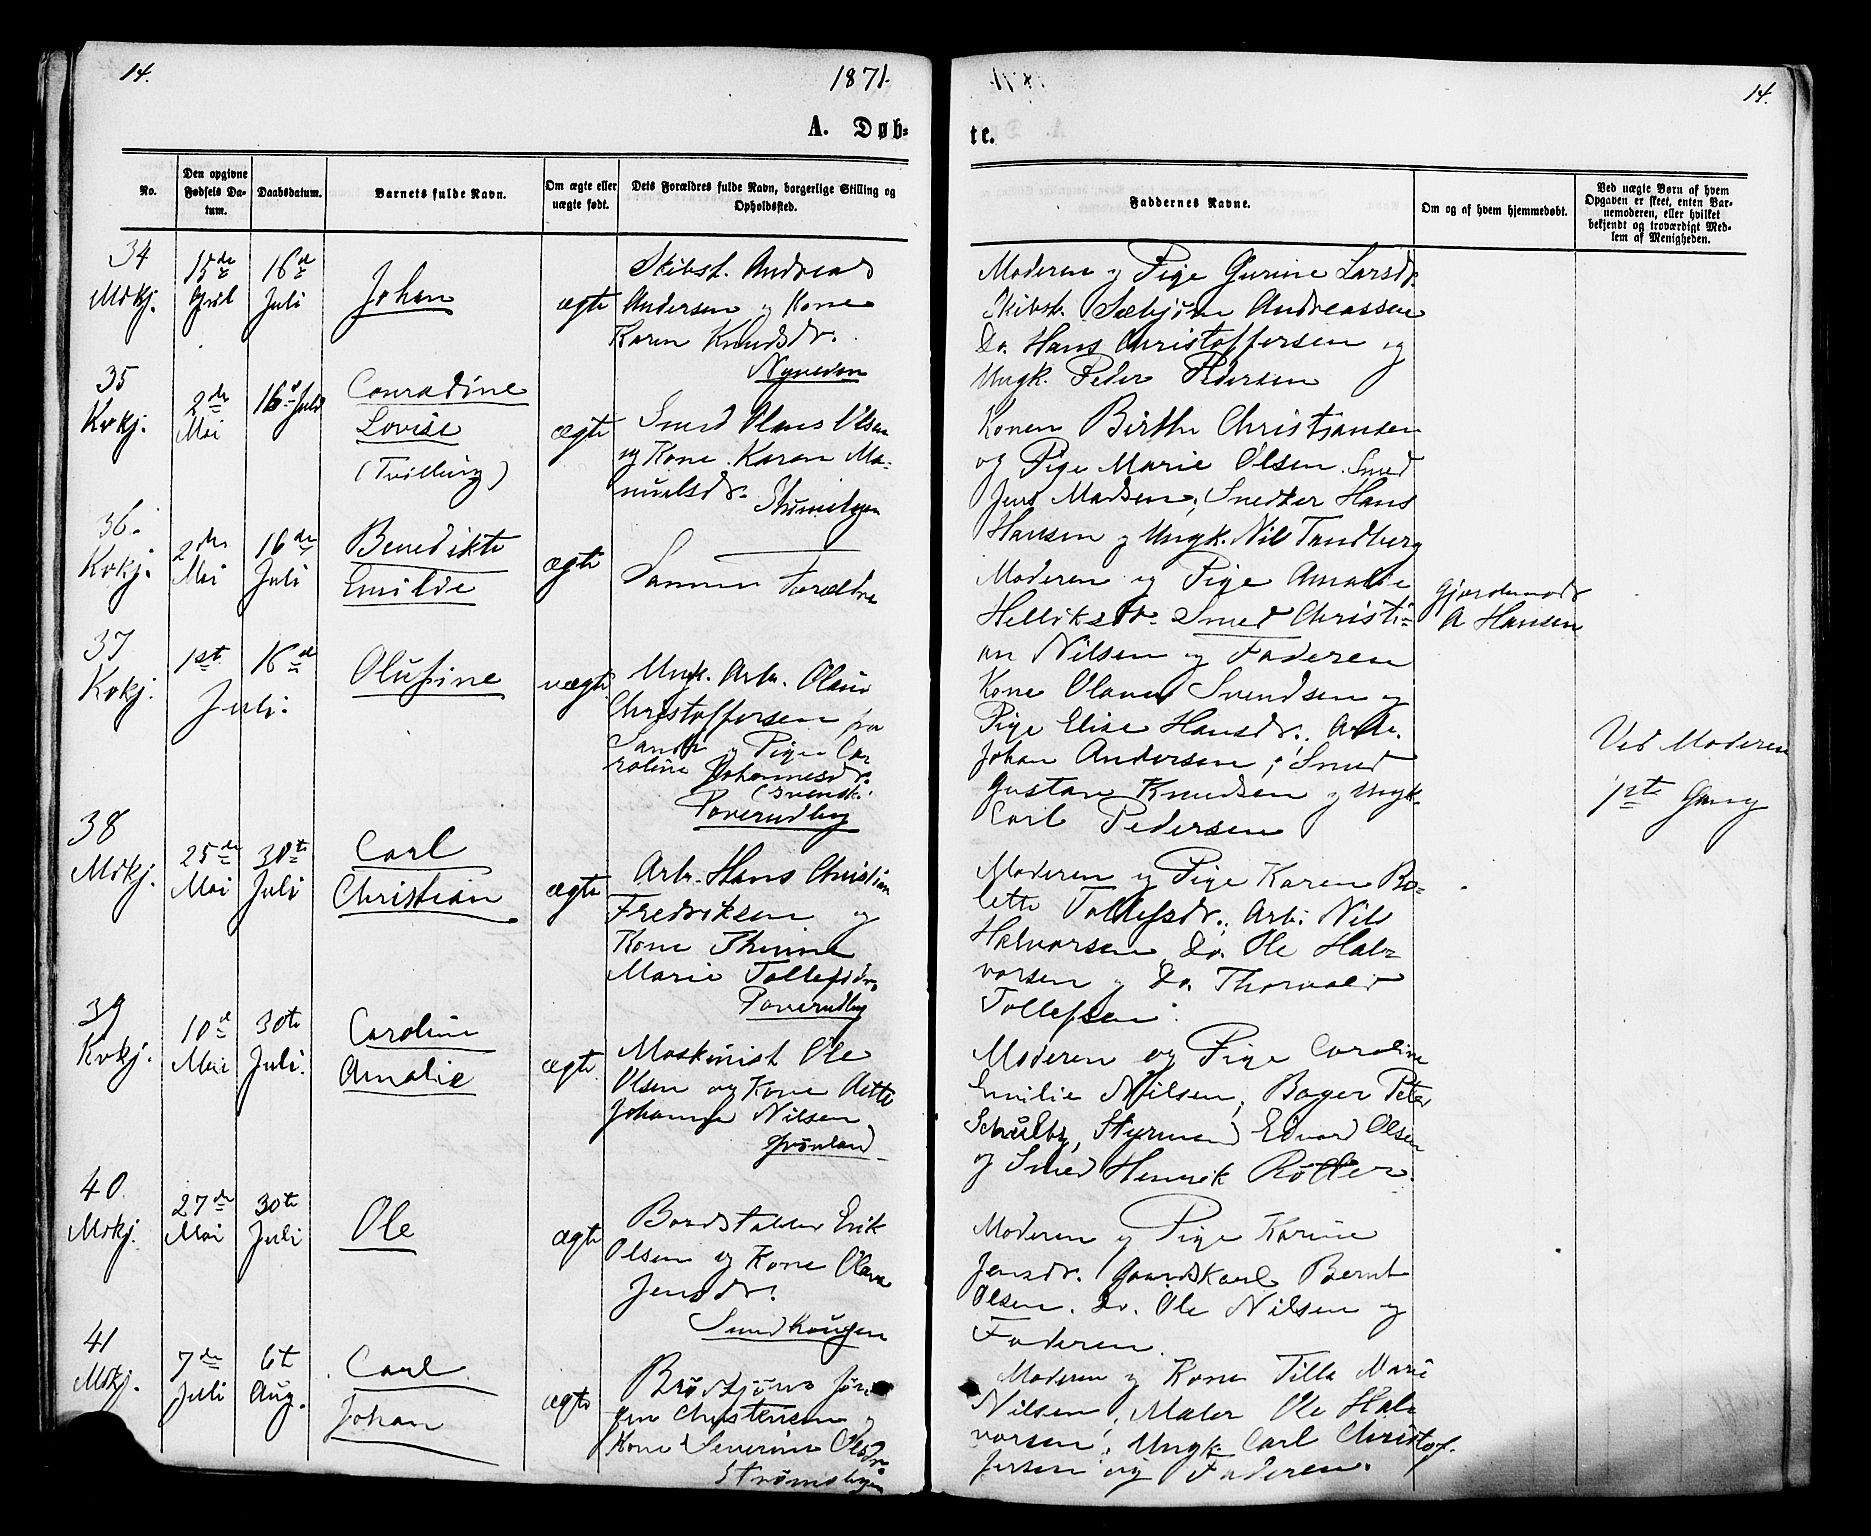 14.
1871.
A. Døb-
No.
Den opgivne Fødsels Da-
tum.
Daabsdatum.
Barnets fulde Navn.
Om ægte eller
uægte født.
Dets Forældres fulde Navn, borgerlige Stilling og
Opholdssted.
34
Mdkj.
15de
April
16de
Juli
Johan
ægte
Skibst. Andreas
Andersen og Kone
Karen Knudsdr.
35
Kvkj.
2den
Mai
16d Juli
Conradine
Lovise
(Tvilling)
ægte
Smed Olaus Olsen
og Kone Karen Ma-
nuelsdr.
36.
Kvkj.
2den
Mai
16de
Juli
Benedikte
Emilde
ægte
Samme Forældre
37
Kvkj.
1st
16de
Juli.
Olufine
uægte
Ungk. Arb. Olaus
Christoffersen fra
Sande og Pige Ca-
roline Johannesdr.
(svensk)
Poverudbyg
38
Mdkj.
25de
Mai
30te
Juli
Carl
Christian
ægte
Arb. Hans Christian
Fredriksen og
Kone Thrine
Marie Tollefsdr.
Poverudbyg
39
Kvkj.
10d
Mai
30te
Juli.
Caroline
Amalie
ægte
Maskinist Ole
Olsen og Kone Aette
Johanne Nilsen
Grønland
40
Mdkj.
27de
Mai
30te
Juli
Ole
ægte
Bordstabler Erik
Olsen og Kone Olava
Jensdr.
Sundhougen
41
Mdkj.
7de
Juli
6te
Aug.
Carl
Johan
ægte
Jør-
gen Christensen og
Kone Severine Olsdr.
Strømsbogen
14.
te.
Faddernes Navne.
Om og af hvem hjemmedøbt.
Ved uægte Børn af hvem
Opgaven er skeet, enten Bar-
nemoderen, eller hvilket
bekjendt og troværdigt Med-
lem af Menigheden.
Moderen og Pige Gurine Larsdr.
Skibst. Sæbjørn Andreassen
Do. Hans Christoffersen og
Ungk. Peder Pedersen
Konen Birthe Christiansen
og Pige Marie Olsen. Smed
Jens Madsen, Snedker Hans
Hansen og Ungk. Nils Tandberg
Moderen og Pige Amalie
Helliksdr. Smed Christi-
an Nilsen og Faderen
Gjordemodr
A Hansen
Kone Olava Svendsen og
Pige Elise Hansdr., Arb.
Johan Andersen, Smed
Gustav Knudsen og Ungk.
Carl Pedersen
Ved Moderen
1ste Gang
Moderen og Pige Karen Bo-
lette Tollefsdr., Arb. Nils
Halvorsen, Do. Ole Hal-
vorsen og Do. Thorvald
Tollefsen
Moderen og Pige Caroline
Emilie Nilsen, Bager Peter
Schultz, Styrmand Edvard Olsen
og Smed Henrik
Moderen og Pige Karine
Jensdr. Gaardskarl Bernt
Olsen. Do. Ole Nilsen og
Faderen.
Moderen og Kone Tilla Marie
Nilsen, Maler Ole Hal-
vorsen, Ungk. Carl Christof-
fersen og Faderen.